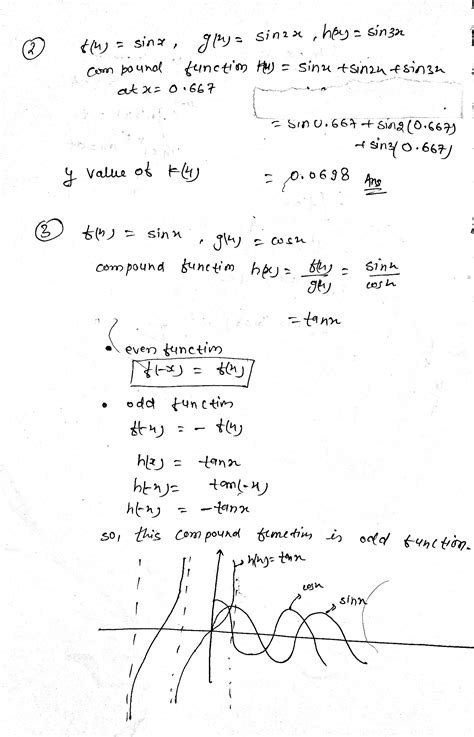 ② f(x) = sinx, g(x) = sin2x, h(x) = sin3x
compound function k(x) = sinx + sin2x + sin3x
at x = 0.667
= sin 0.667 + sin2(0.667)
+ sin3(0.667)
y value of k(x) = 0.0698 Ans
③ f(x) = sinx, g(x) = cosx
compound function h(x) = f(x)/g(x) = sinx/cosx
= tanx
• even function
f(-x) = f(x)
• odd function
f(-x) = - f(x)
h(x) = tanx
h(-x) = tan(-x)
h(-x) = -tanx
so, this compound function is odd function.
h(x) = tanx
cosx
sinx